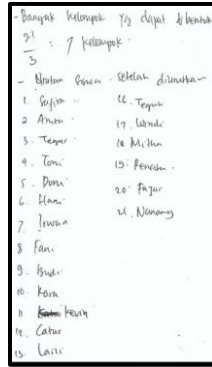 - Banyak kelompok yg dapat dibentuk
21
3 : 7 kelompok.
- Urutan siswa setelah diurutkan
1. Safira
2. Anton
3. Tegar
4. Toni
5. Doni
6. Hani
7. Irwan
8. Fani
9. Budi
10. Kara
11. Kevin
12. Catur
13. Laili
16. Teguh
17. Windi
18. Mitha
19.
20. Fajar
21. Nanang